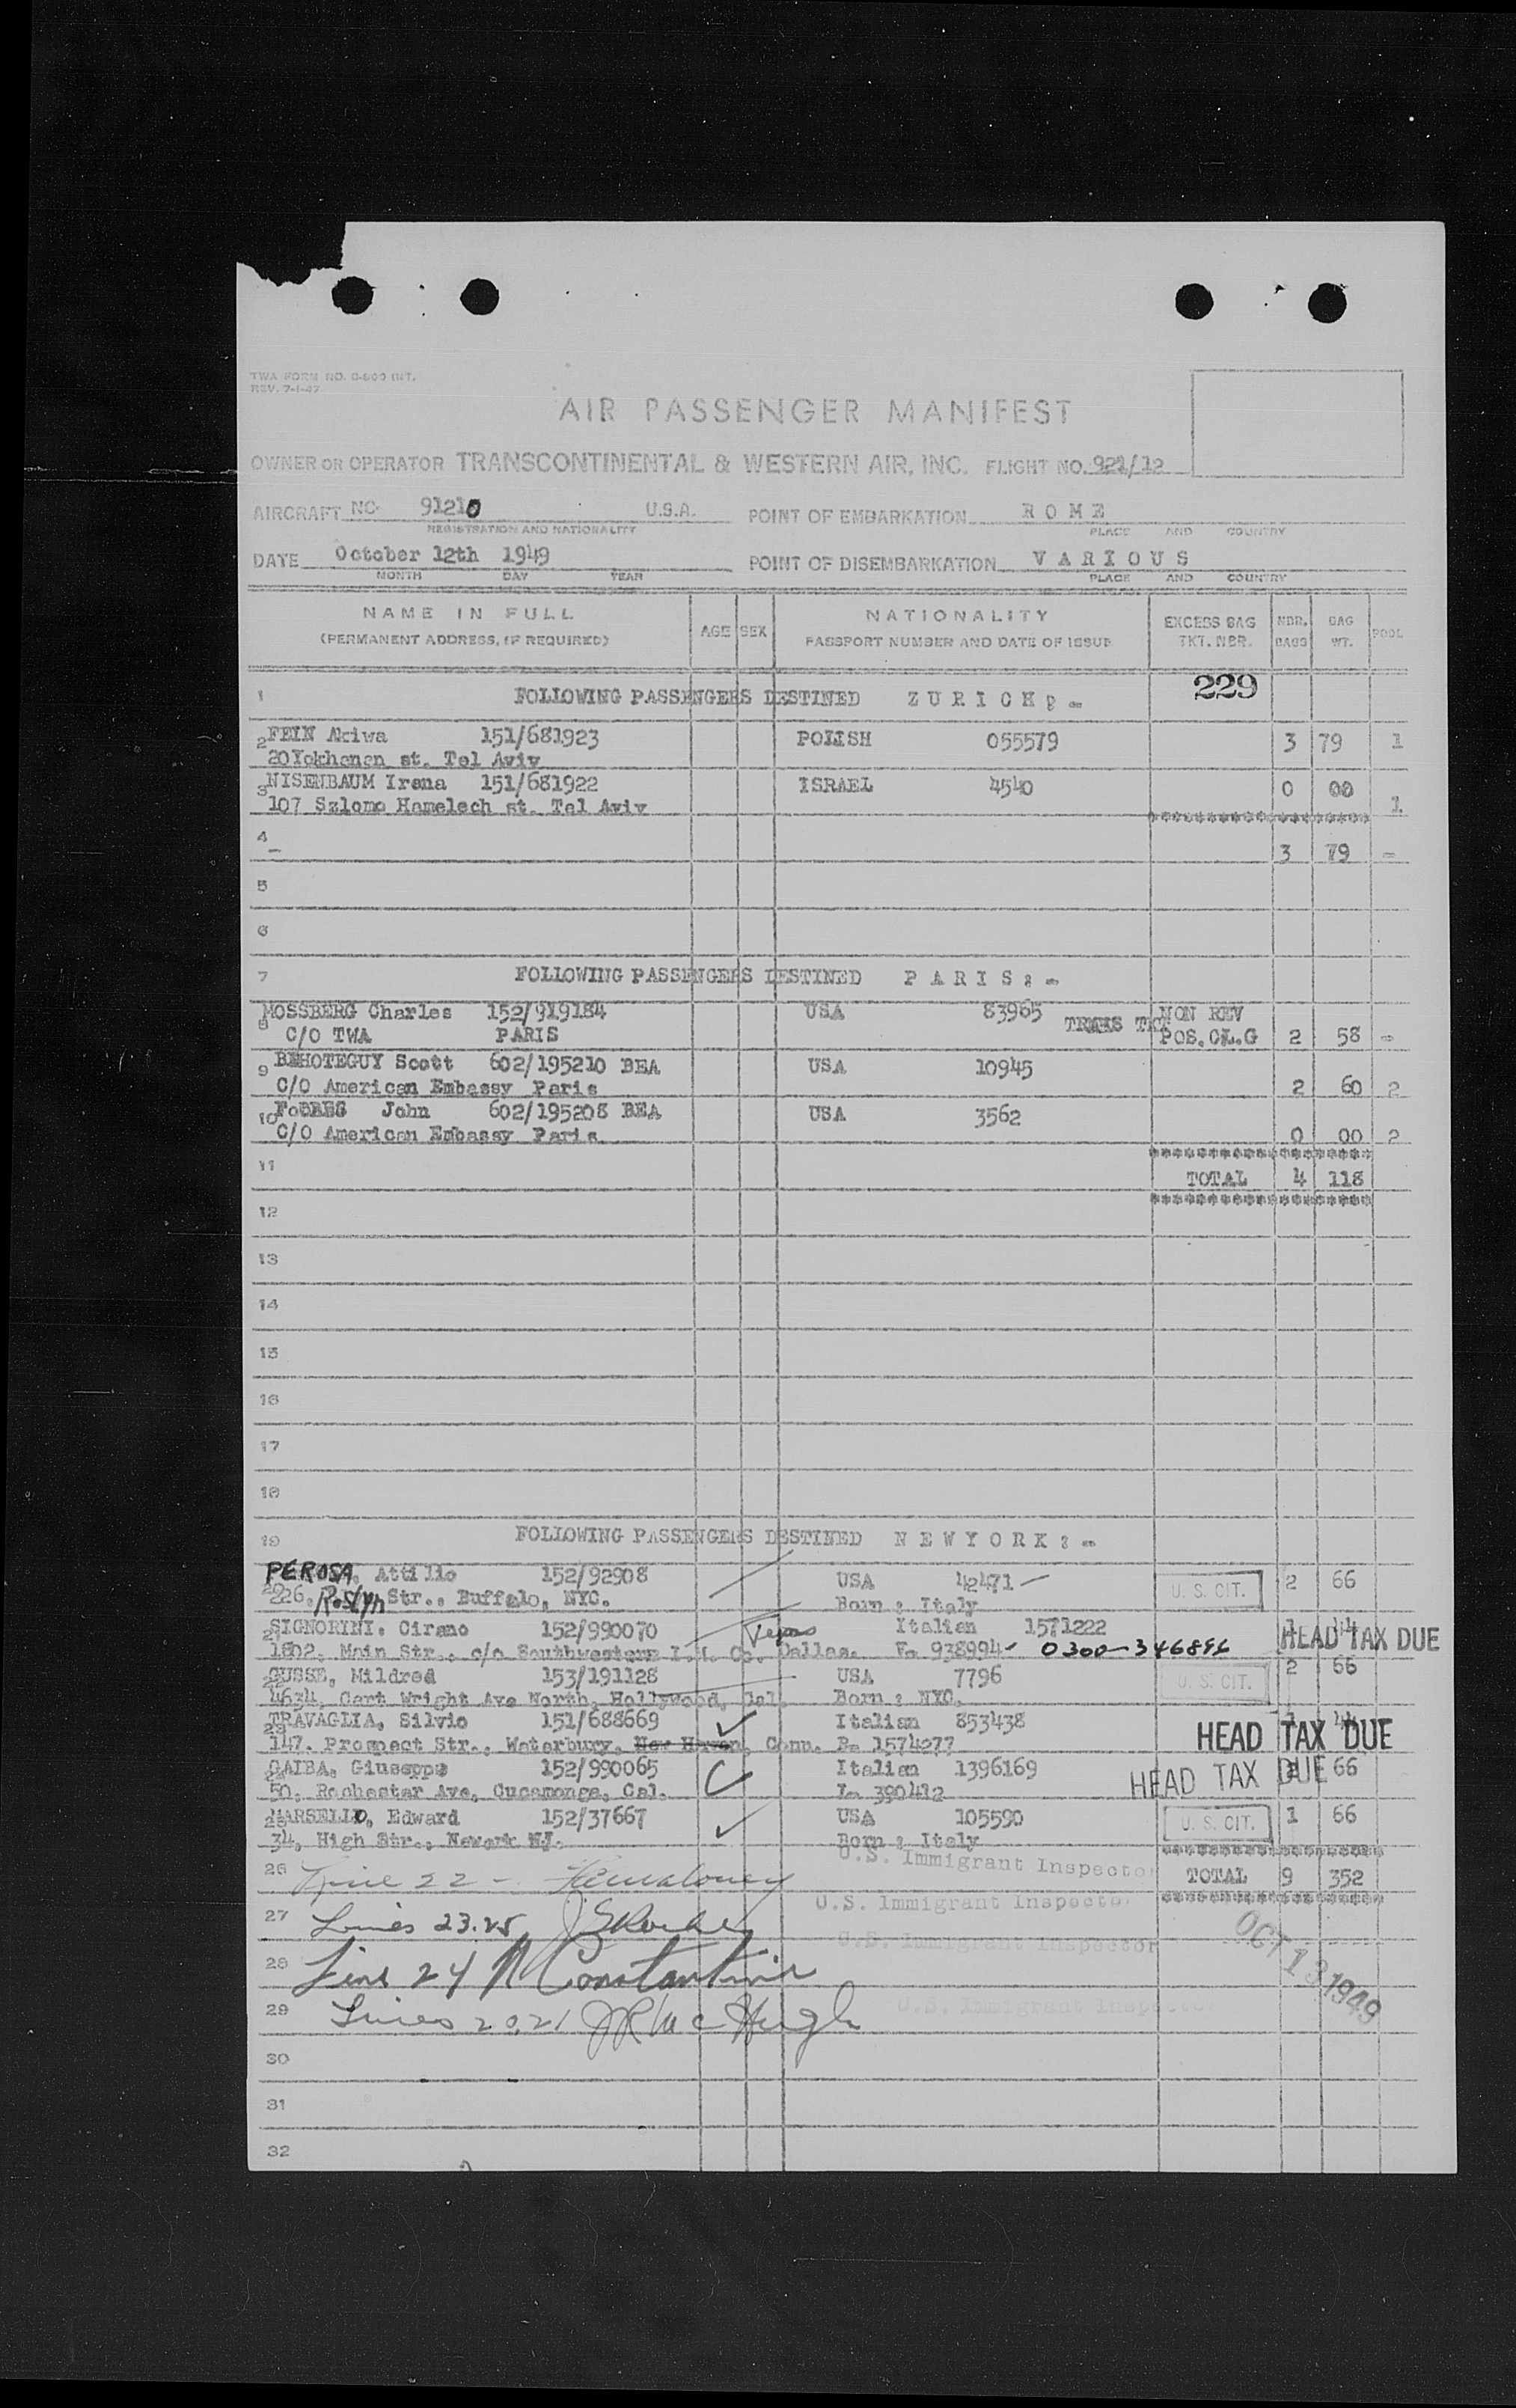 TWA FORM NO. O-600 INT.
REV. 7-1-47
AIR PASSENGER MANIFEST
OWNER OR OPERATOR TRANSCONTINENTAL & WESTERN AIR, INC. FLIGHT NO. 921/12
AIRCRAFT NC- 91210 U.S.A. POINT OF EMBARKATION R O M E
REGISTRATION AND NATIONALITY PLACE AND COUNTRY
DATE October 12th 1949 POINT OF DISEMBARKATION V A R I O U S
MONTH DAY YEAR PLACE AND COUNTRY
NAME IN FULL AGE SEX NATIONALITY EXCESS BAG NBR. BAG POOL
(PERMANENT ADDRESS, IF REQUIRED) PASSPORT NUMBER AND DATE OF ISSUE TKT. NBR. BAGS WT.
229
1 FOLLOWING PASSENGERS DESTINED Z U R I C H : -
2 FEIN Akiwa 151/681923 POLISH 055579 3 79 1
20 Yokhanan st. Tel Aviv
3 NISENBAUM Irena 151/681922 ISRAEL 4540 0 00
107 Szlomo Hamelech st. Tel Aviv 1
4
- 3 79 -
5
6
7 FOLLOWING PASSENGERS DESTINED P A R I S : -
MOSSBERG Charles 152/919184 USA 83965 TRANS TKT NON REV
8 C/O TWA PARIS POS.CL.G 2 58 -
9 BEHOTEGUY Scott 602/195210 BEA USA 10945
C/O American Embassy Paris 2 60 2
10 John 602/195208 BEA USA 3562
C/O American Embassy Paris 0 00 2
11 TOTAL 4 118
12
13
14
15
16
17
18
19 FOLLOWING PASSENGERS DESTINED N E W Y O R K : -
PEROSA, Attilio 152/92908 USA 42471- U. S. CIT. 2 66
20 226, Roslyn Str., Buffalo, NYC. Born : Italy
21 SIGNORINI, Cirano 152/990070 Texas Italian 1571222 1 44 HEAD TAX DUE
1802, Main Str., c/o Southwestern I.M. Co. Dallas. V- 938994- 0300-346896
22 GUSSE, Mildred 153/191128 USA 7796 U. S. CIT. 2 66
4634, Cart Wright Ave North, Hollywood, Cal. Born : NYC.
23 TRAVAGLIA, Silvio 151/688669 Italian 853438 44
147. Prospect Str., Waterbury, New Haven, Conn. B- 1574277 HEAD TAX DUE
24 GAIBA, Giuseppe 152/990065 Italian 1396169 66
50, Rochester Ave, Cucamonga, Cal. I- 390412 HEAD TAX DUE
25 MARSELLO, Edward 152/37667 USA 105590 U. S. CIT. 1 66
34, High Str., Newark NJ. Born : Italy
26 Line 22 - U.S. Immigrant Inspector TOTAL 9 352
27 Lines 23.25 U.S. Immigrant Inspector
28 Line 24 N Constantine U.S. Immigrant Inspector OCT 13 1949
29 Lines 20,21 JR McHugh U.S. Immigrant Inspector
30
31
32